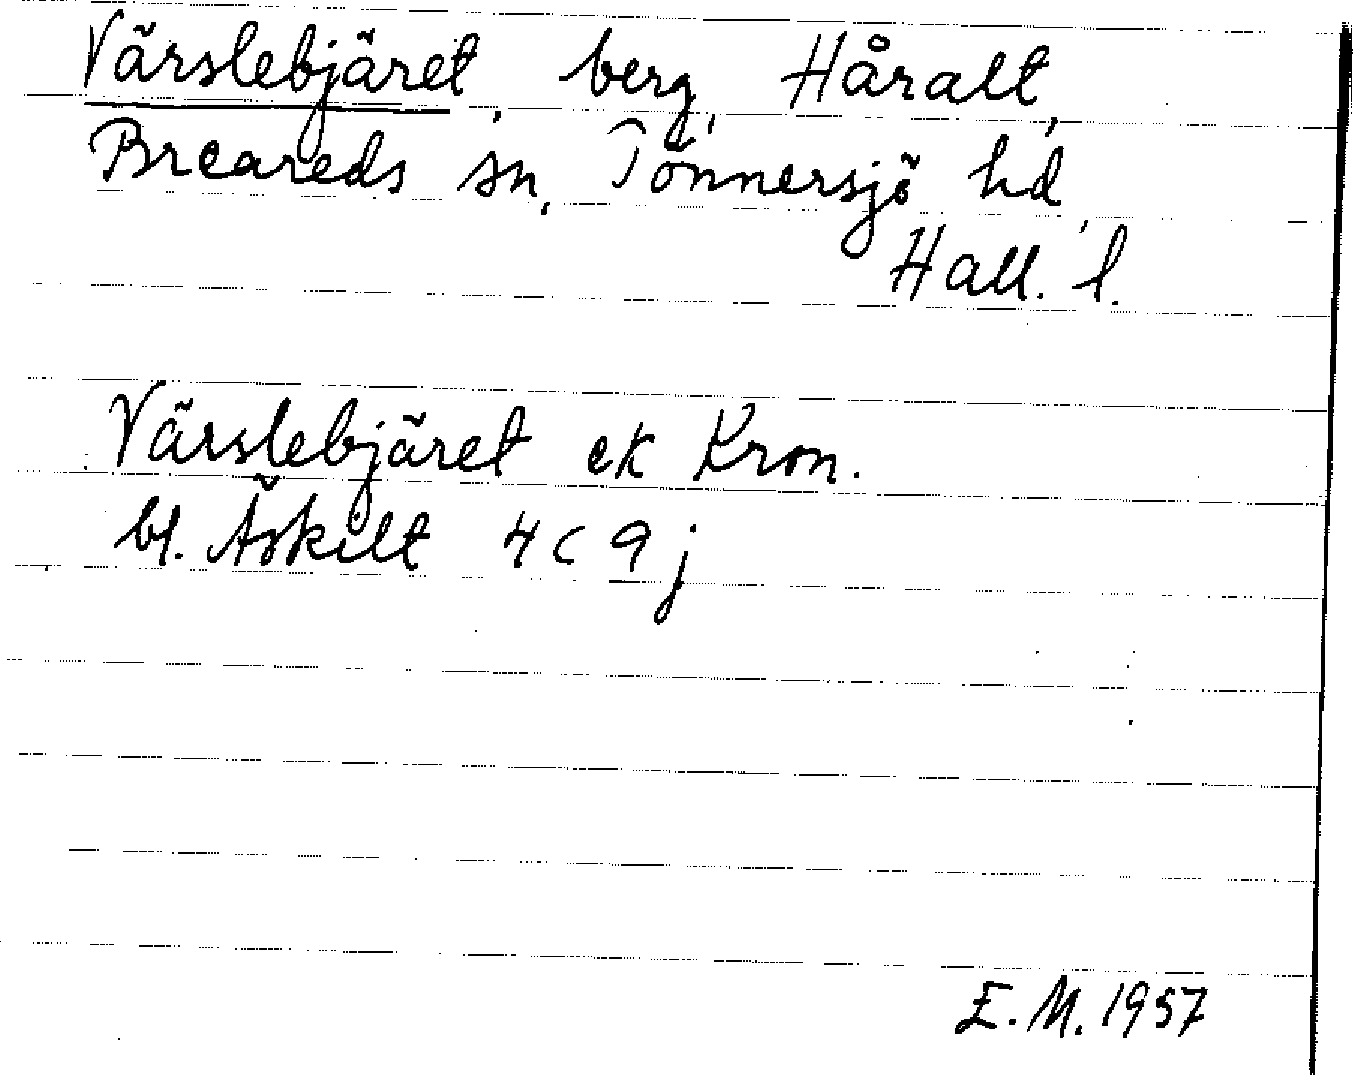 Värslebjäret, berg, Håralt,
Breareds sn, Tönnersjö hd,
Hall. l.
Värslebjäret ek Kron.
bl. Äskilt 4 C 9 j
E. M. 1957